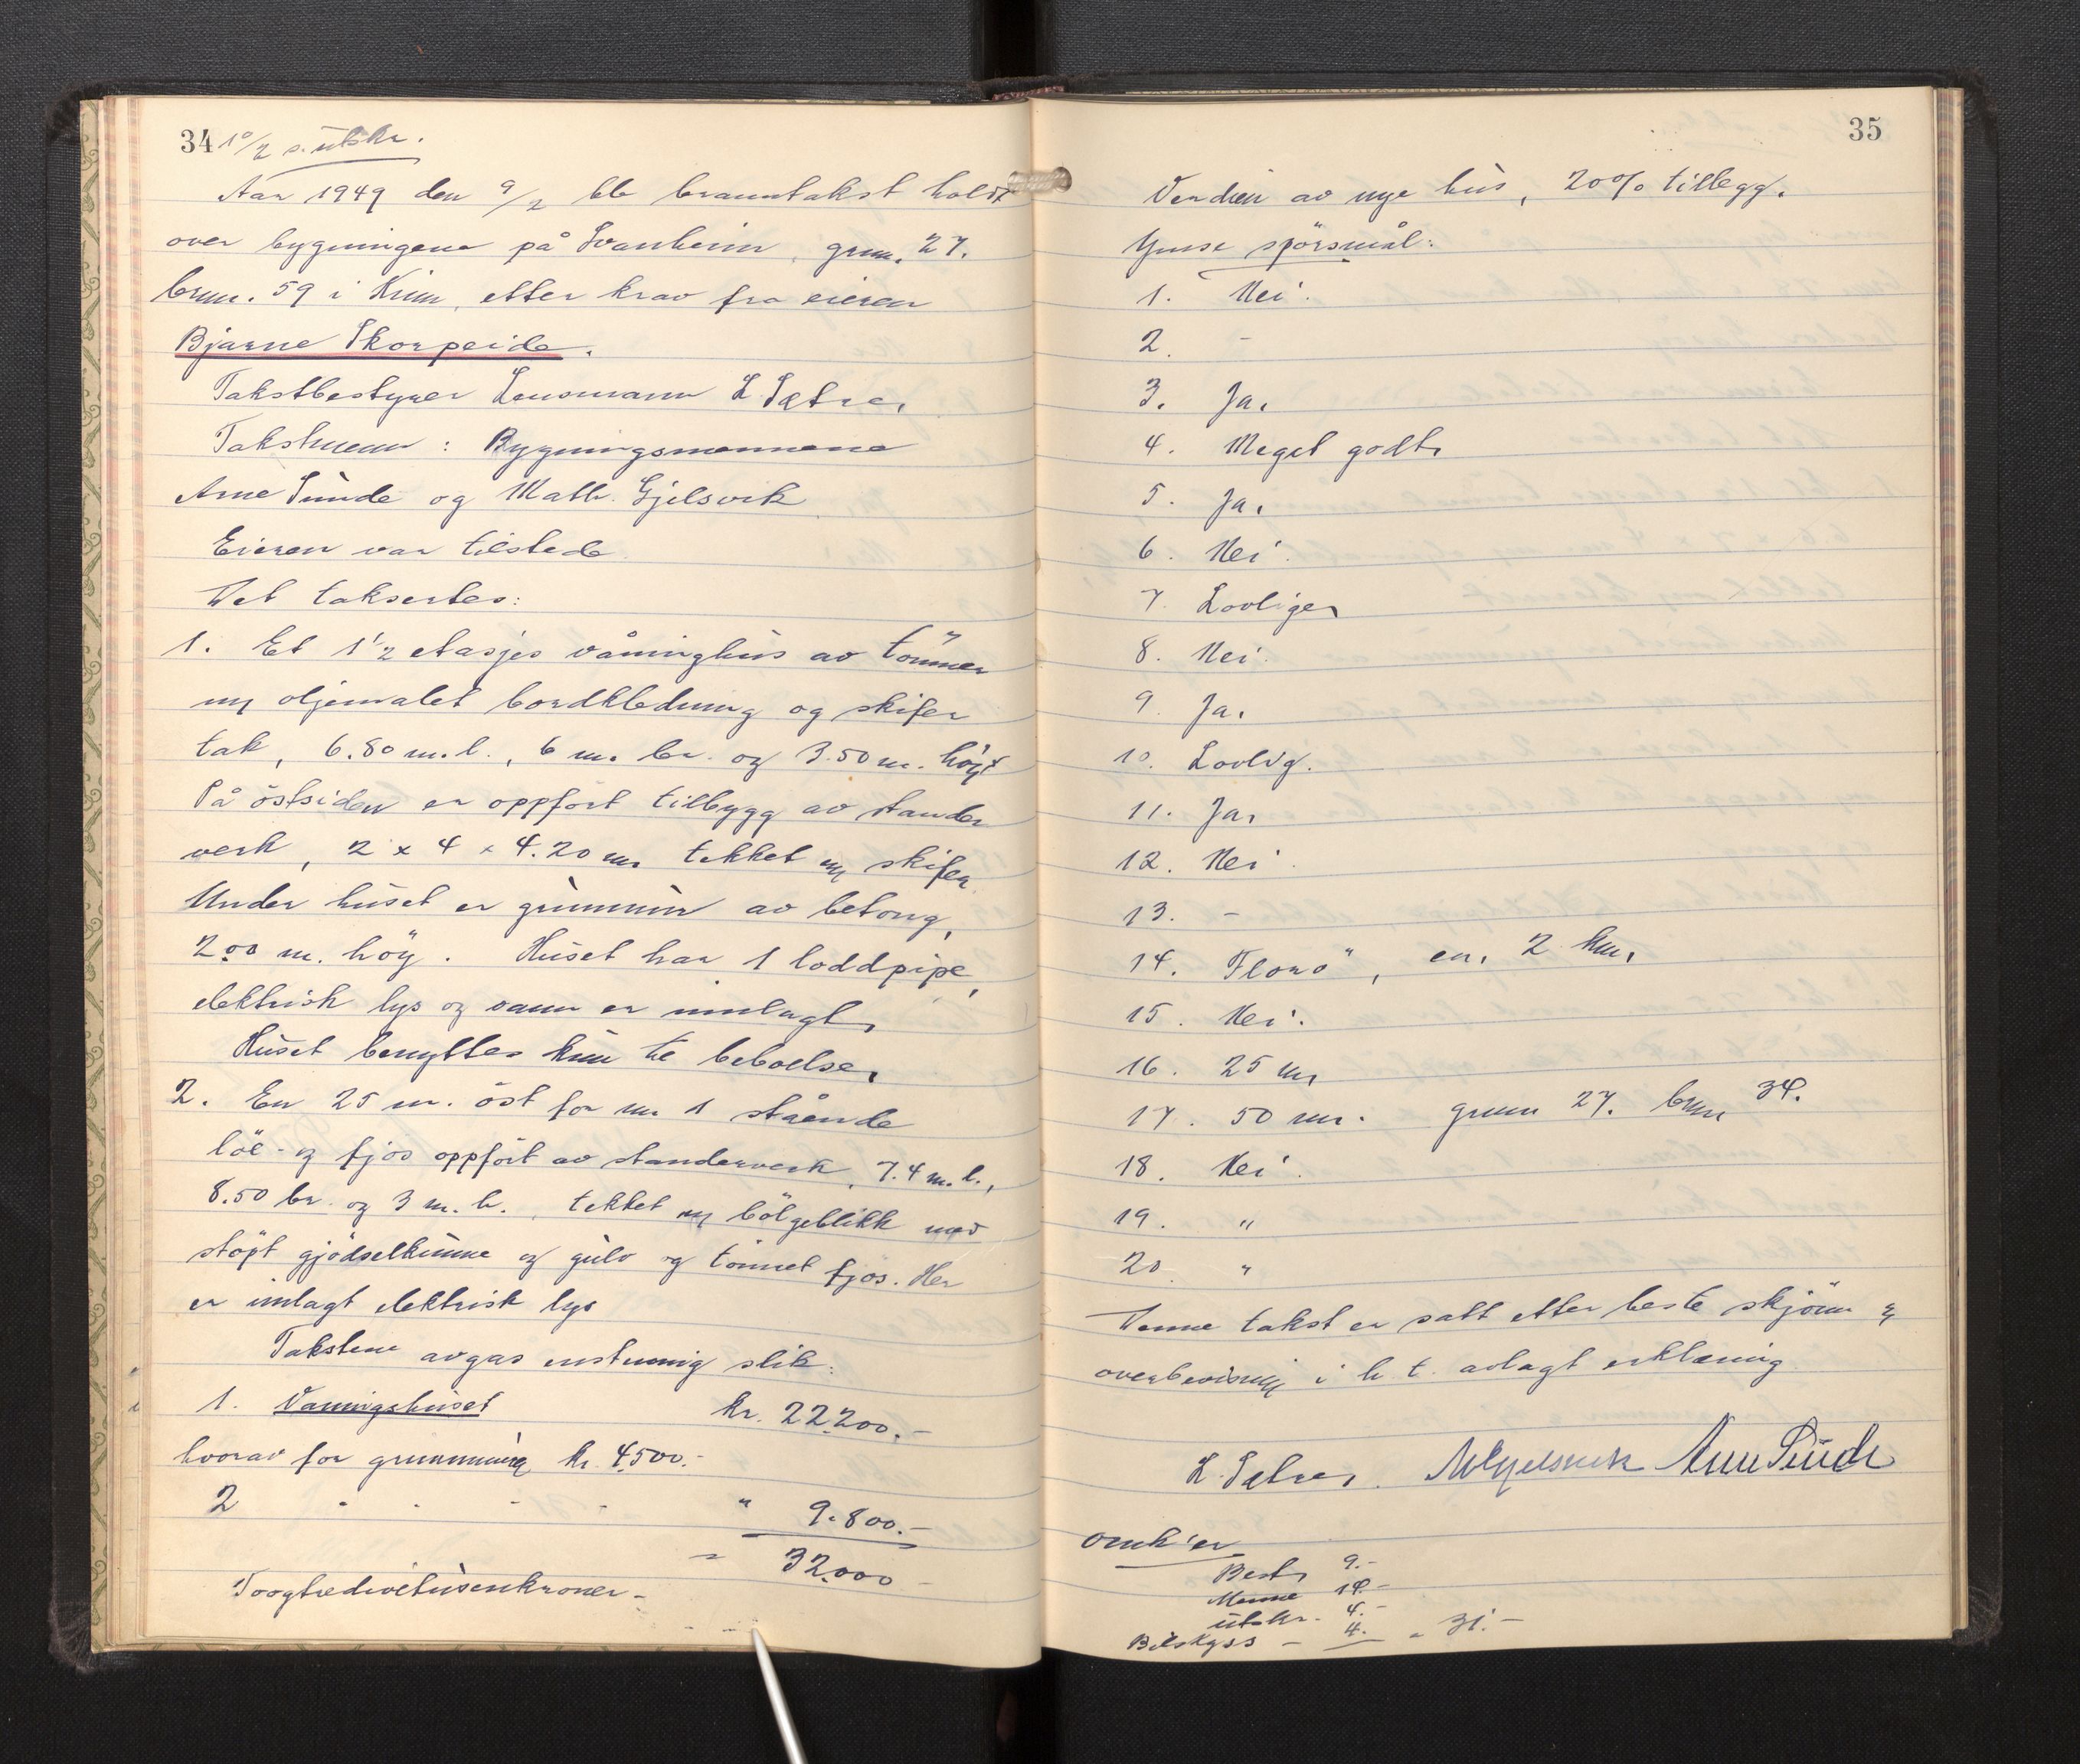 34 10/2 s. utskr.
Aar 1949 den 9/2 ble branntakst holdt
over bygningene på Svanheim, grnr. 27.
brnr. 59 i Kinn, etter krav fra eieren
Bjarne Skorpeide.
Takstbestyrer Lensmann L. Sætre,
Takstmenn: Bygningsmennene
Arne Sunde og Math. Gjelsvik
Eieren var tilstede
Det taksertes:
1. Et 1 1/2 etasjes våninghus av tömmer
m/ oljemalet bordkledning og skifer
tak, 6.80 m. l., 6 m. br. og 3.50 m. högt
På östsiden er oppfört tilbygg av stander
verk, 2 x 4 x 4.20 m. tekket m/ skifer
Under huset er grunnmur av betong,
2.00 m. höy. Huset har 1 loddpipe,
elektrisk lys og vann er innlagt,
Huset benyttes kun til beboelse,
2. En 25 m. öst for nr. 1 stående
löe- og fjos oppfört av standerverk, 7.4 m. l.,
8.50 br. og 3 m. h., tekket m/ bölgeblikk med
stöpt gjödselkumme og gulv og tömret fjos. Her
er innlagt elektrisk lys
Takstene avgas enstemmig slik:
1. Vaningshuset kr. 22.200.-
hvorav for grunnmuren kr. 4.500.-
2 - - - - " 9.800.-
= 32.000 -
Toogtredivetusenkroner -
35
Verdien av nye hus, 20% tillegg.
Ymse spörsmål:
1. Nei.
2. -
3. Ja.
4. Meget godt,
5. Ja.
6. Nei.
7. Lovlige,
8. Nei.
9. Ja.
10. Lovlig.
11. Ja,
12. Nei.
13. -
14. Florö, ca. 2 km.
15. Nei.
16. 25 m,
17. 50 m. grnr 27. brnr 34.
18. Nei.
19. "
20. "
Denne takst er satt etter beste skjönn og
overbevisning i h. t. avlagt erklæring
L. Sætre, M Gjelsvik Arne Sunde
Omk'er
Best, 9.-
Menne 14.-
utskr. 4.-
Bilskyss - 4. - = 31.-